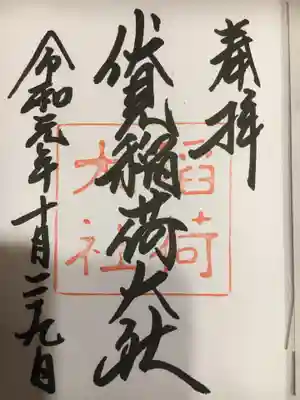 奉拝
伏見稲荷大社
令和元年十月二九日
稻荷
大社